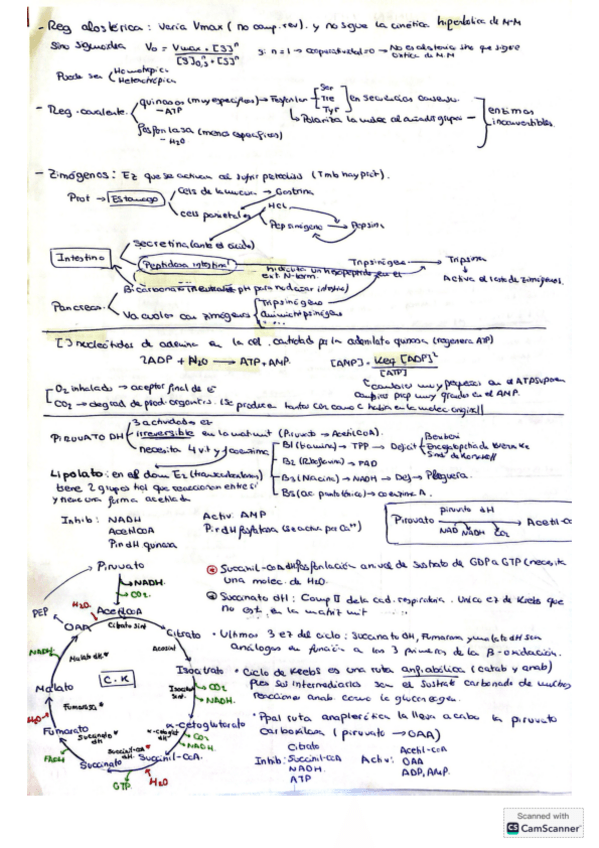 - Reg alostérica: varia Vmax (no comp. rev). y no sigue la cinética hiperbólica de M-M
Sino sigmoidea V₀ = Vmax · [S]ⁿ / [S]0,5 + [S]ⁿ si n = 1 → cooperatividad = 0 → No es alosterica sino que sigue cinetica de M.M
Puede ser Homotrópica
Heterotrópica
- Reg. covalente quinasas (muy especificas) → Fosforilan Ser
- ATP
Tre
Tyr
en secuencias consenso.
Polariza la molec al añadir grupo -
fosforilasa (menos especificas)
- H₂O
enzimas
inconvertibles.
- Zimógenos: Ez que se activan al sufrir proteolisis (Tmb hay prot).
Prot → Estomago
cels de la mucosa → Gastrina
cels parietales
HCl
Pepsinógeno → Pepsina
Intestino
Secretina (ante el ácido)
Peptidasa intestinal
hidroliza un hexapeptido en el
ext. N-term.
Tripsinógeno → Tripsina
Activa el resto de zimógenos.
Bicarbonato
pH para no dañar intestino)
Pancreas
Va cuolos con zimógenos
Tripsinógeno
Quimiotripsinógeno
[ ] nucleótidos de adenina en la cel. controlado por la adenilato quinasa (regenera ATP)
2ADP + H₂O → ATP + AMP. [AMP] = Keq [ADP]² / [ATP]
cambios muy pequeños en el ATP suponen
cambios prop muy grandes en el AMP.
O₂ inhalado → aceptor final de e⁻
CO₂ → degrad de prod. organicos. (Se produce tantos CO₂ como C había en la molec original)
PIRUVATO DH
3 actividades ez
irreversible en la mat mit (Piruvato → AcetilCoA).
necesita 4 vit y coenzima
B1 (tiamina) → TPP → Deficit
Beriberi
Encefalopatia de Wernicke
Sind de Korsakoff
B2 (Riboflavina) → FAD
B3 (Niacina) → NADH → Def → Pelagra.
B5 (ac. pantoténico) → coenzima A.
Lipolato: en el dom E₂ (transacetilasa)
tiene 2 grupos tiol que reaccionan entre sí
y tiene una forma acetilada
Inhib: NADH
AcetilCoA
Pir dH quinasa
Activ: AMP
Pir dH fosfatasa (se activa por Ca²⁺)
piruvato dH
Piruvato → Acetil-Co
NAD NADH CO₂
Piruvato
NADH.
CO₂.
AcetilCoA
H₂O.
PEP
OAA
Citrato sint
Citrato
Aconit
Isocitrato
CO₂
NADH.
α-cetoglutarato
CO₂
NADH.
Succinil-CoA.
H₂O
GTP.
Succinato
Succinato dH
FADH
Fumarato
H₂O
Fumarasa
Malato
Malato dH
NADH
C.K
Succinil-CoA dH fosforilación a nivel de sustrato de GDP a GTP (necesita
una molec. de H₂O.
Succinato dH: Comp II de la cad. respiratoria. Unica ez de Krebs que
no está en la matriz mit
• Ultimas 3 ez del ciclo: succinato dH, fumarasa y malato dH son
análogas en función a las 3 primeras de la β-oxidación.
• Ciclo de Krebs es una ruta anfibólica (catab y anab)
Pues sus intermediarios son el sustrato carbonado de muchas
reacciones anab. como la glucogeog.
• Ppal ruta anaplerótica la lleva a cabo la piruvato
Carboxilasa (piruvato → OAA)
Citrato
Inhib: Succinil-CoA
NADH.
ATP
Acetil-CoA
Activ: OAA
ADP, AMP.
Scanned with
CS CamScanner